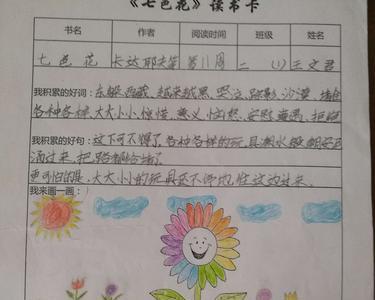 《七色花》读书卡
书名 作者 阅读时间 班级 姓名
七色花 卡达耶夫 第11周 二(1) 王文君
我积累的好词：东躲西藏、越来越黑、
各种各样、大大小小、惊慌、意义、
我积累的好句：这下可不得了,各种各样的玩具潮水般朝
涌过来,把路都给堵了
更可怕的是,大大小小的玩具还不停地往这边过来。
我来画一画：